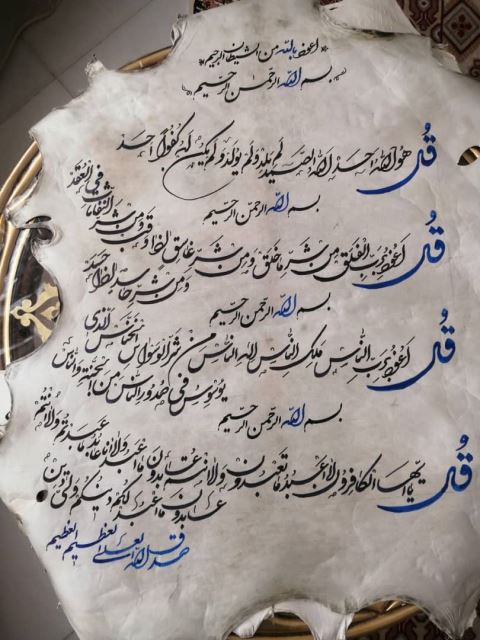 اعوذ بالله من الشیطان الرجیم
بسم الله الرحمن الرحیم
قل هو الله احد الله الصمد لم یلد ولم یولد ولم یکن له کفوا احد
بسم الله الرحمن الرحیم
قل اعوذ برب الفلق من شر ما خلق ومن شر غاسق اذا وقب ومن شر النفاثات فی العقد
ومن شر حاسد اذا حسد
بسم الله الرحمن الرحیم
قل اعوذ برب الناس ملک الناس اله الناس من شر الوسواس الخناس الذی
یوسوس فی صدور الناس من الجنة والناس
بسم الله الرحمن الرحیم
قل یا ایها الکافرون لا اعبد ما تعبدون ولا انتم عابدون ما اعبد ولا انا عابد ما عبدتم ولا انتم
عابدون ما اعبد لکم دینکم ولی دین
صدق الله العلی العظیم العظیم